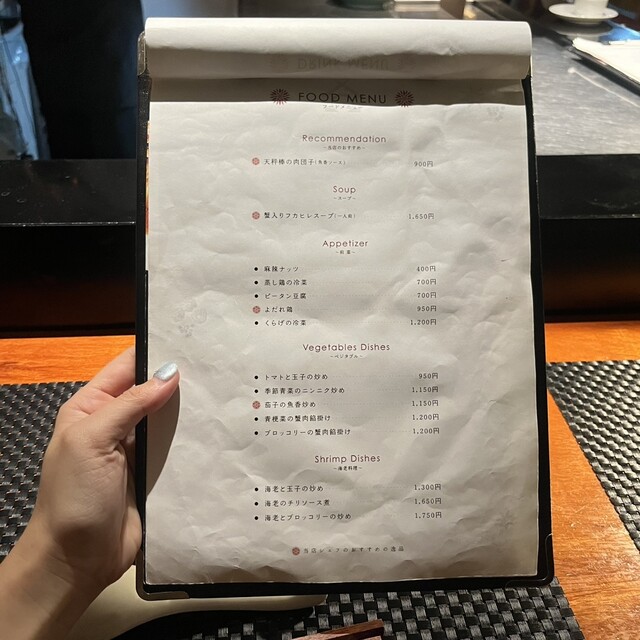 FOOD MENU
Recommendation
～当店のおすすめ～
天秤棒の肉団子(魚香ソース) 900円
Soup
～スープ～
蟹入りフカヒレスープ(一人前) 1,650円
Appetizer
～前菜～
麻辣ナッツ 400円
蒸し鶏の冷菜 700円
ピータン豆腐 700円
よだれ鶏 950円
くらげの冷菜 1,200円
Vegetables Dishes
～ベジタブル～
トマトと玉子の炒め 950円
季節青菜のニンニク炒め 1,150円
茄子の魚香炒め 1,150円
青梗菜の蟹肉餡掛け 1,200円
ブロッコリーの蟹肉餡掛け 1,200円
Shrimp Dishes
～海老料理～
海老と玉子の炒め 1,300円
海老のチリソース煮 1,650円
海老とブロッコリーの炒め 1,750円
当店シェフのおすすめの逸品